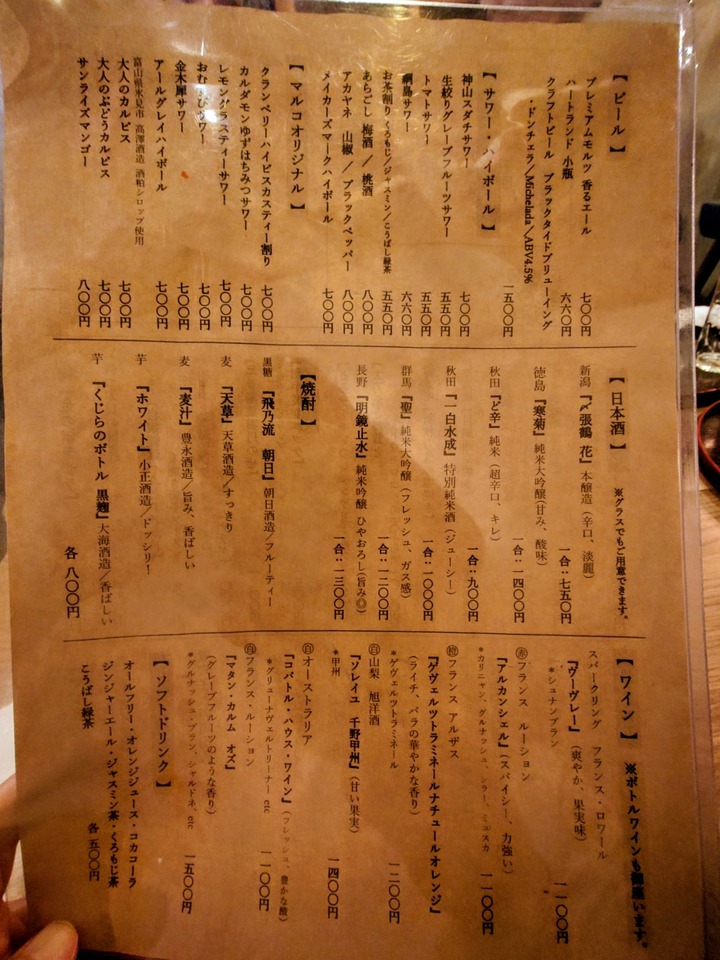 【ビール】
プレミアムモルツ 香るエール 七〇〇円
ハートランド 小瓶 六六〇円
クラフトビール ブラックタイドブリューイング
・ドンチェラ／Michelada／ABV4.5% 一五〇〇円
【サワー・ハイボール】
神山スダチサワー 七〇〇円
生絞りグレープフルーツサワー 五五〇円
トマトサワー 五五〇円
綱島サワー 六六〇円
お茶割り くろもじ／ジャスミン／こうばし緑茶 五五〇円
あらごし 梅酒 ／ 桃酒 八〇〇円
アカヤネ 山椒 ／ ブラックペッパー 八〇〇円
メイカーズマークハイボール 七〇〇円
【マルコオリジナル】
クランベリーハイビスカスティー割り 七〇〇円
カルダモンゆずはちみつサワー 七〇〇円
レモングラスティーサワー 七〇〇円
おむすびサワー 七〇〇円
金木犀サワー 七〇〇円
アールグレイハイボール 七〇〇円
富山県氷見市 高澤酒造 酒粕シロップ使用
大人のカルピス 七〇〇円
大人のぶどうカルピス 七〇〇円
サンライズマンゴー 八〇〇円
【日本酒】 ※グラスでもご用意できます。
新潟 『〆張鶴 花』 本醸造 （辛口、淡麗）
一合：七五〇円
徳島 『寒菊』 純米大吟醸（甘み、酸味）
一合：一四〇〇円
秋田 『ど辛』 純米 （超辛口、キレ）
一合：九〇〇円
秋田 『一白水成』 特別純米酒 （ジューシー）
一合：一〇〇〇円
群馬 『聖』 純米大吟醸 （フレッシュ、ガス感）
一合：一二〇〇円
長野 『明鏡止水』 純米吟醸 ひやおろし（旨み◎）
一合：一三〇〇円
【焼酎】
黒糖 『飛乃流 朝日』 朝日酒造／フルーティー
麦 『天草』 天草酒造／すっきり
麦 『麦汁』 豊永酒造／旨み、香ばしい
芋 『ホワイト』 小正酒造／ドッシリ！
芋 『くじらのボトル 黒麹』 大海酒造／香ばしい
各 八〇〇円
【ワイン】 ※ボトルワインも御座います。
スパークリング フランス・ロワール
『ヴーヴレー』 （爽やか、果実味）
*シュナンブラン 一一〇〇円
赤 フランス ルーション
『アルカンシェル』 （スパイシー、力強い）
*カリニャン、グルナッシュ、シラー、ミュスカ 一一〇〇円
橙 フランス アルザス
『ゲヴェルツトラミネールナチュールオレンジ』
（ライチ、バラの華やかな香り）
*ゲヴェルツトラミネール 一二〇〇円
白 山梨 旭洋酒
『ソレイユ 千野甲州』 （甘い果実）
*甲州 一四〇〇円
白 オーストラリア
『コバトル・ハウス・ワイン』 （フレッシュ、豊かな酸）
*グリューナヴェルトリーナー etc 一一〇〇円
白 フランス・ルーション
『マタン・カルム オズ』
（グレープフルーツのような香り）
*グルナッシュ・ブラン、シャルドネ、etc 一五〇〇円
【ソフトドリンク】
オールフリー・オレンジジュース・コカコーラ
ジンジャーエール・ジャスミン茶・くろもじ茶
こうばし緑茶 各 五〇〇円